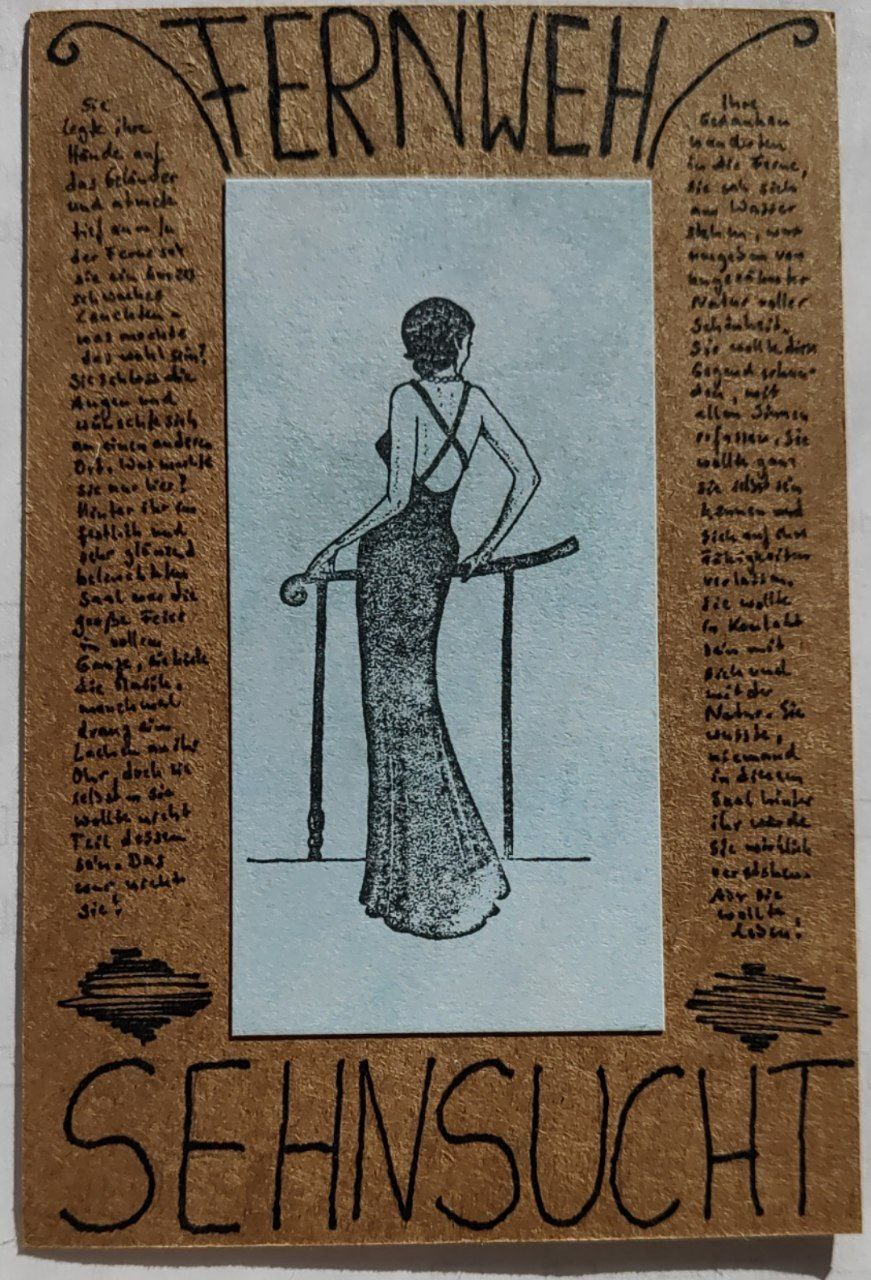 FERNWEH
Sie
legte ihre
Hände auf
das Geländer
und atmete
tief
der Ferne sah
sie ein kurzes
schwaches
Leuchten.
was mochte
das wohl sein?
Sie schloss die
Augen und
wünschte sich
an einen anderen
Ort. Was machte
sie nur hier?
Hinter ihr im
festlich und
sehr glänzend
beleuchteten
Saal war die
große Feier
in vollem
Gange, sie hörte
die Musik,
manchmal
drang ein
Lachen an ihr
Ohr, doch sie
selbst
wollte nicht
Teil dessen
sein. Das
war nicht
Sie!
Ihre
Gedanken
wanderten
in die Ferne,
sie sah sich
am Wasser
stehen, war
umgeben von
ungezähmter
Natur voller
Schönheit.
Sie wollte diese
Gegend
mit
allen Sinnen
erfassen. Sie
wollte ganz
sie selbst sein
können und
sich auf ihre
Fähigkeiten
verlassen.
Sie wollte
in Kontakt
sein mit
sich und
mit der
Natur. Sie
wusste,
niemand
in diesem
Saal hinter
ihr würde
sie wirklich
verstehen.
Aber sie
wollte
leben!
SEHNSUCHT